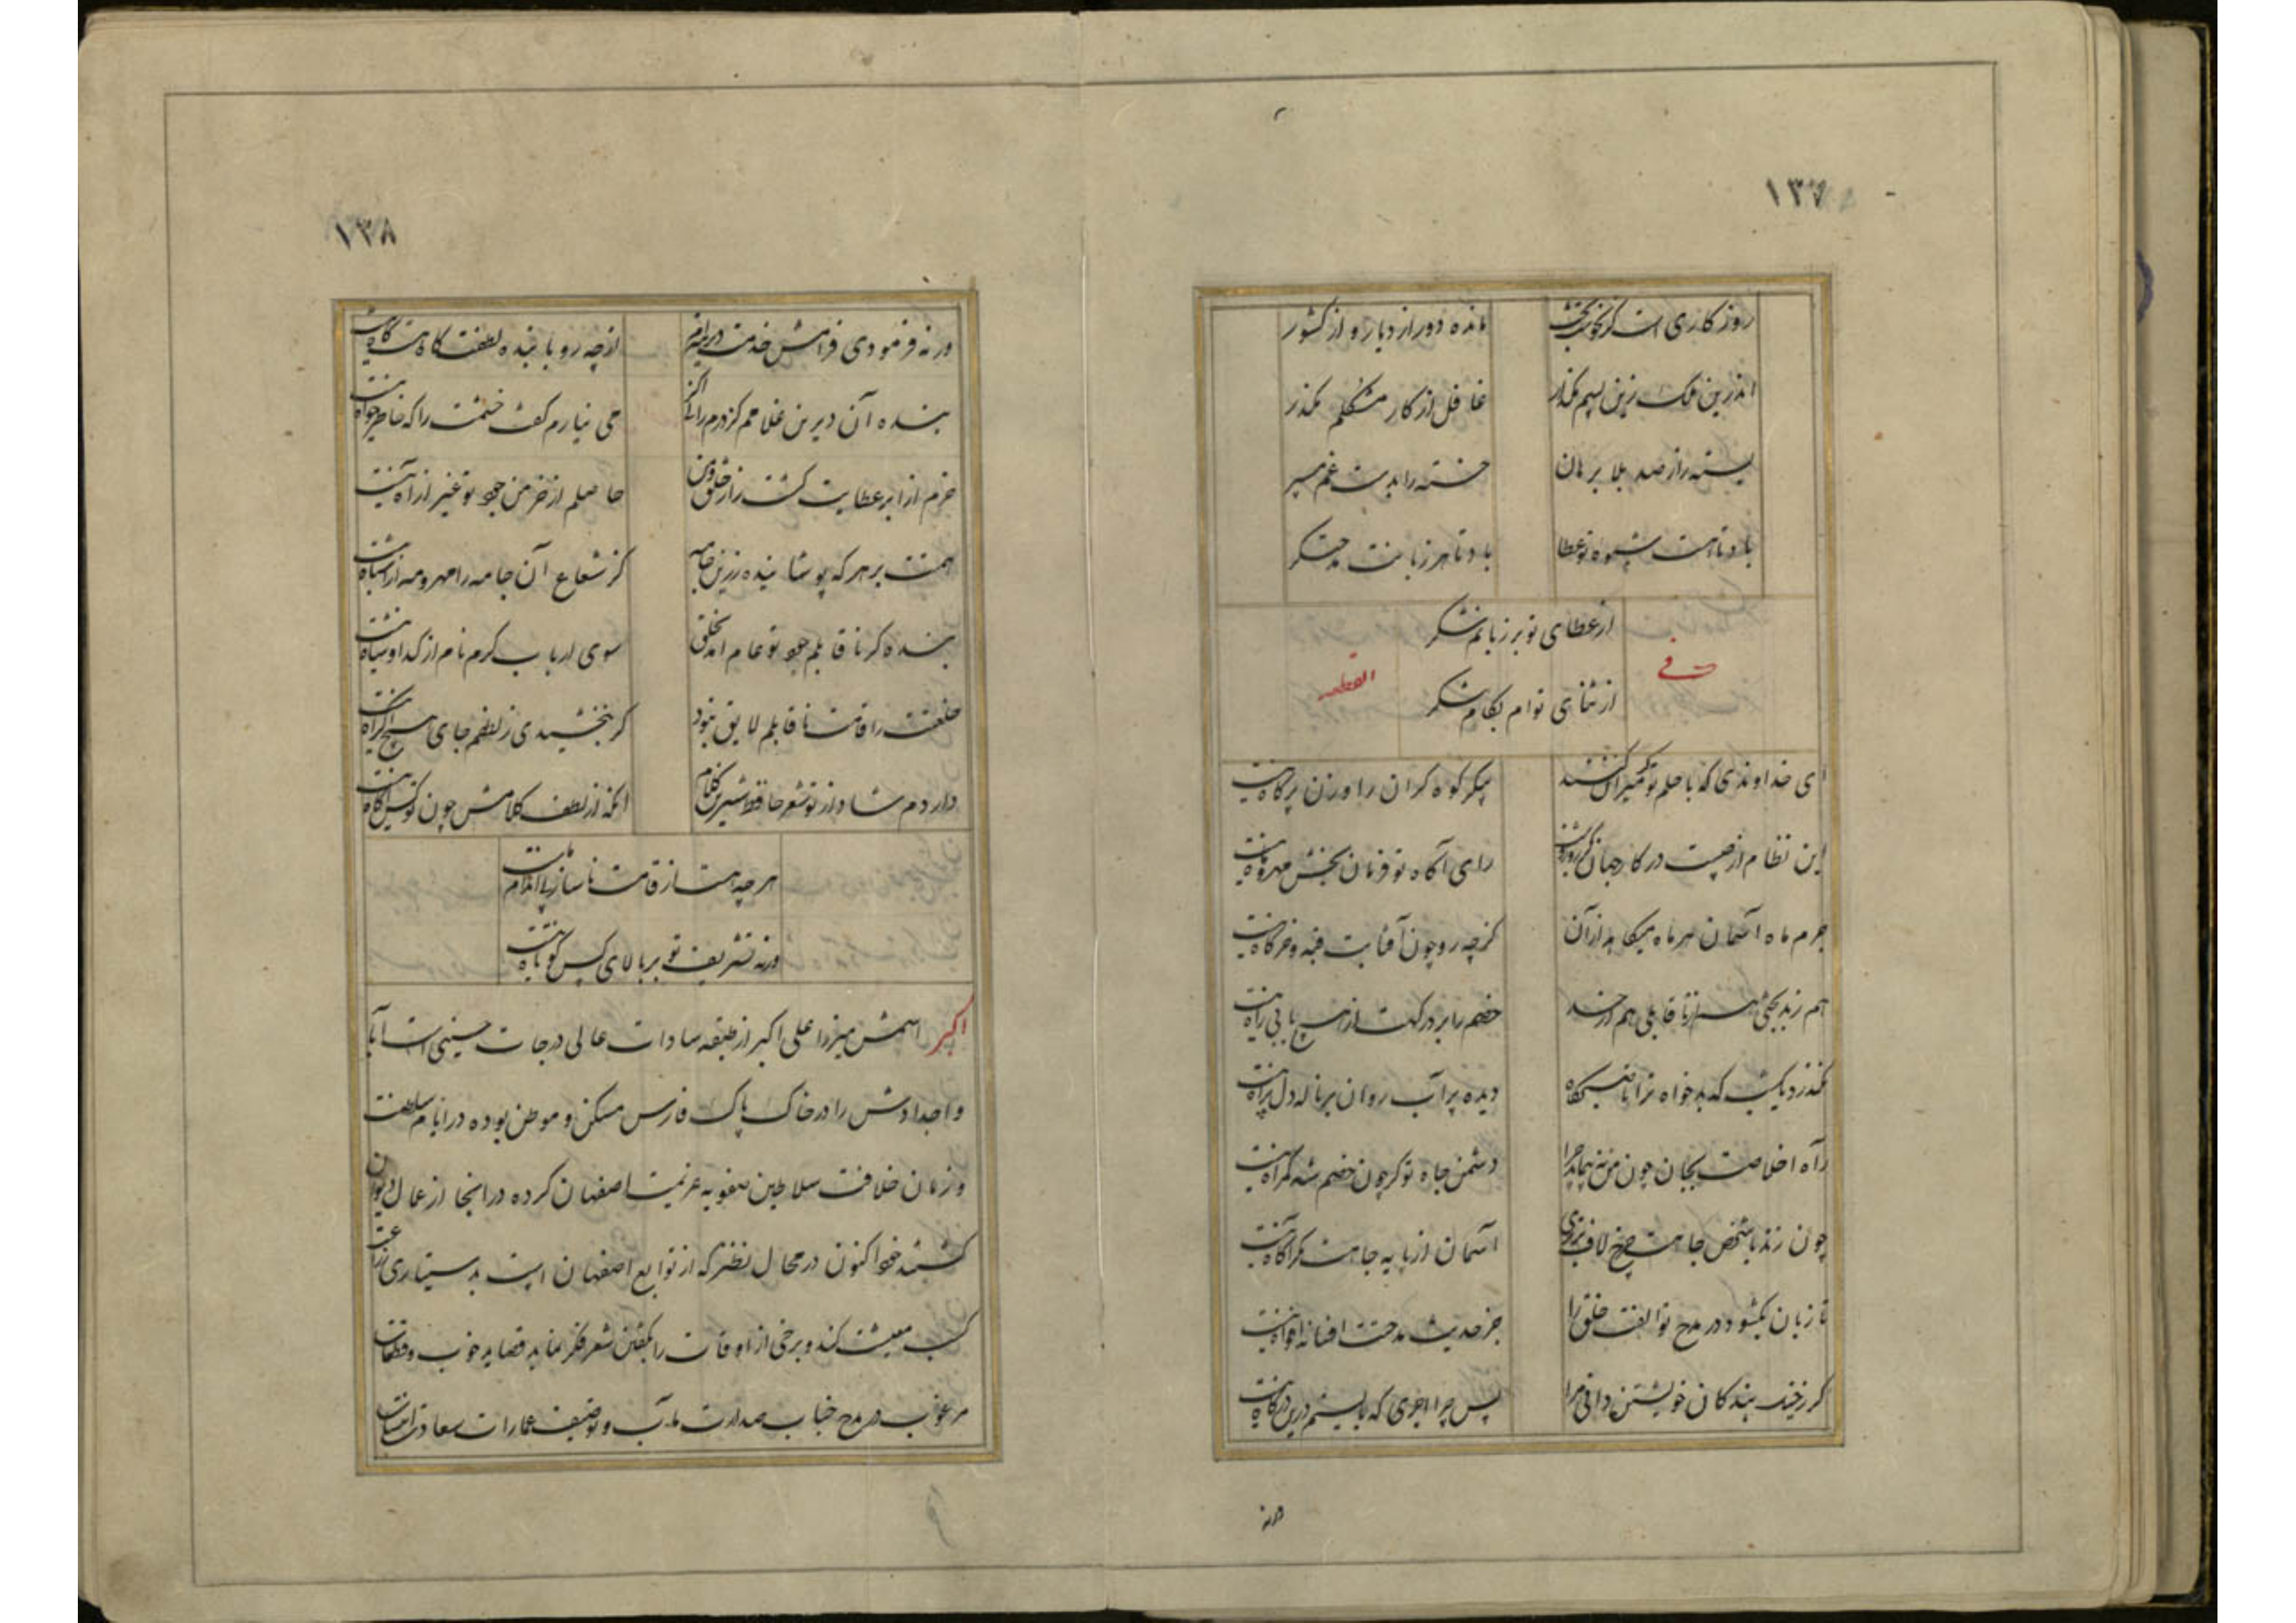 ۱۳۷
روزگاری است کز نحوست بخت مانده دور از دیار و از کشور
اندرین ملک زین سپم مگذار غافل از کار مشکلم مگذر
بسته را از صد بلا برهان خسته را بدست غم مسپر
باد تا هست شیوه تو عطا باد تا هر زبانت مدحتگر
از عطای تو بر زبانم شکر
از ثنای تو ام بکام شکر
فی القطعه
ای خداوندی که با حلم تو پیکر کوه کران را وزن پر کاه نیست
این نظام از چیست در کار جهان رای آگاه تو فرمان بخش مهر و ماه نیست
جرم ماه آسمان هر ماه میکاهد از آن کز چه رو چون آفتابت قبه و خرگاه نیست
هم ز بدبختی است از ناقابلی هم از حسد خصم را بر درگهت از هیچ بابی راه نیست
نگذرد یکشب که بدخواه ترا تا صبحگاه دیده پر آب روان پر ناله دل پر آه نیست
راه اخلاصت بجان چون من نپیماید چرا دشمن جاه تو گر چون خصم شه گمراه نیست
چون زند با شخص جاهت چرخ لاف برتری آسمان از پایه جاهت مگر آگاه نیست
تا زبان بگشود در مدح تو الفت خلق را جز حدیث مدحتت افسانه افواه نیست
گر ز خیل بندگان خویشتن دانی مرا پس چرا اجری که بایستم درین درگاه نیست
ورنه
۱۳۸
ورنه فرمودی فرامش خدمت دیرینم از چه رو با بنده لطفت گاه هست و گاه نیست
بنده آن دیرین غلامم کز درم رانی اگر می نیارم گفت خشمت را که خاطرخواه نیست
خرم از ابر عطایت کشت زار خلق و من حاصلم از خرمن جود تو غیر از آه نیست
همتت بر هر که پوشانیده زرین جامه کز شعاع آن جامه را مهر و مه از اشباه نیست
بنده گر ناقابلم جود تو عام آمد بخلق سوی ارباب کرم نام از گدا و شاه نیست
خلعتت را قامت ناقابلم لایق نبود گر نبخشیدی ز لطفم جای هیچ اکراه نیست
دارد م شاد از تو شعر حافظ شیرین کلام آنکه از لطف کلامش چون تو کس آگاه نیست
هر چه هست از قامت ناساز بی اندام ماست
ورنه تشریف تو بر بالای کس کوتاه نیست
اکبر اسمش میرزا علی اکبر از طبقه سادات عالی درجات حسینی است آبا
و اجدادش را در خاک پاک فارس مسکن و موطن بوده در ایام سلطنت
و زمان خلافت سلاطین صفویه عزیمت اصفهان کرده در اینجا از عمال دیوان
گشتند خود اکنون در محال نطنز که از توابع اصفهان است بدستیاری زراعت
کسب معیشت کند و برخی از اوقات را بگفتن شعر فکر نماید قصاید خوب و قطعات
مرغوب در مدح جناب صدارت مآب و توصیف عمارات سعادت